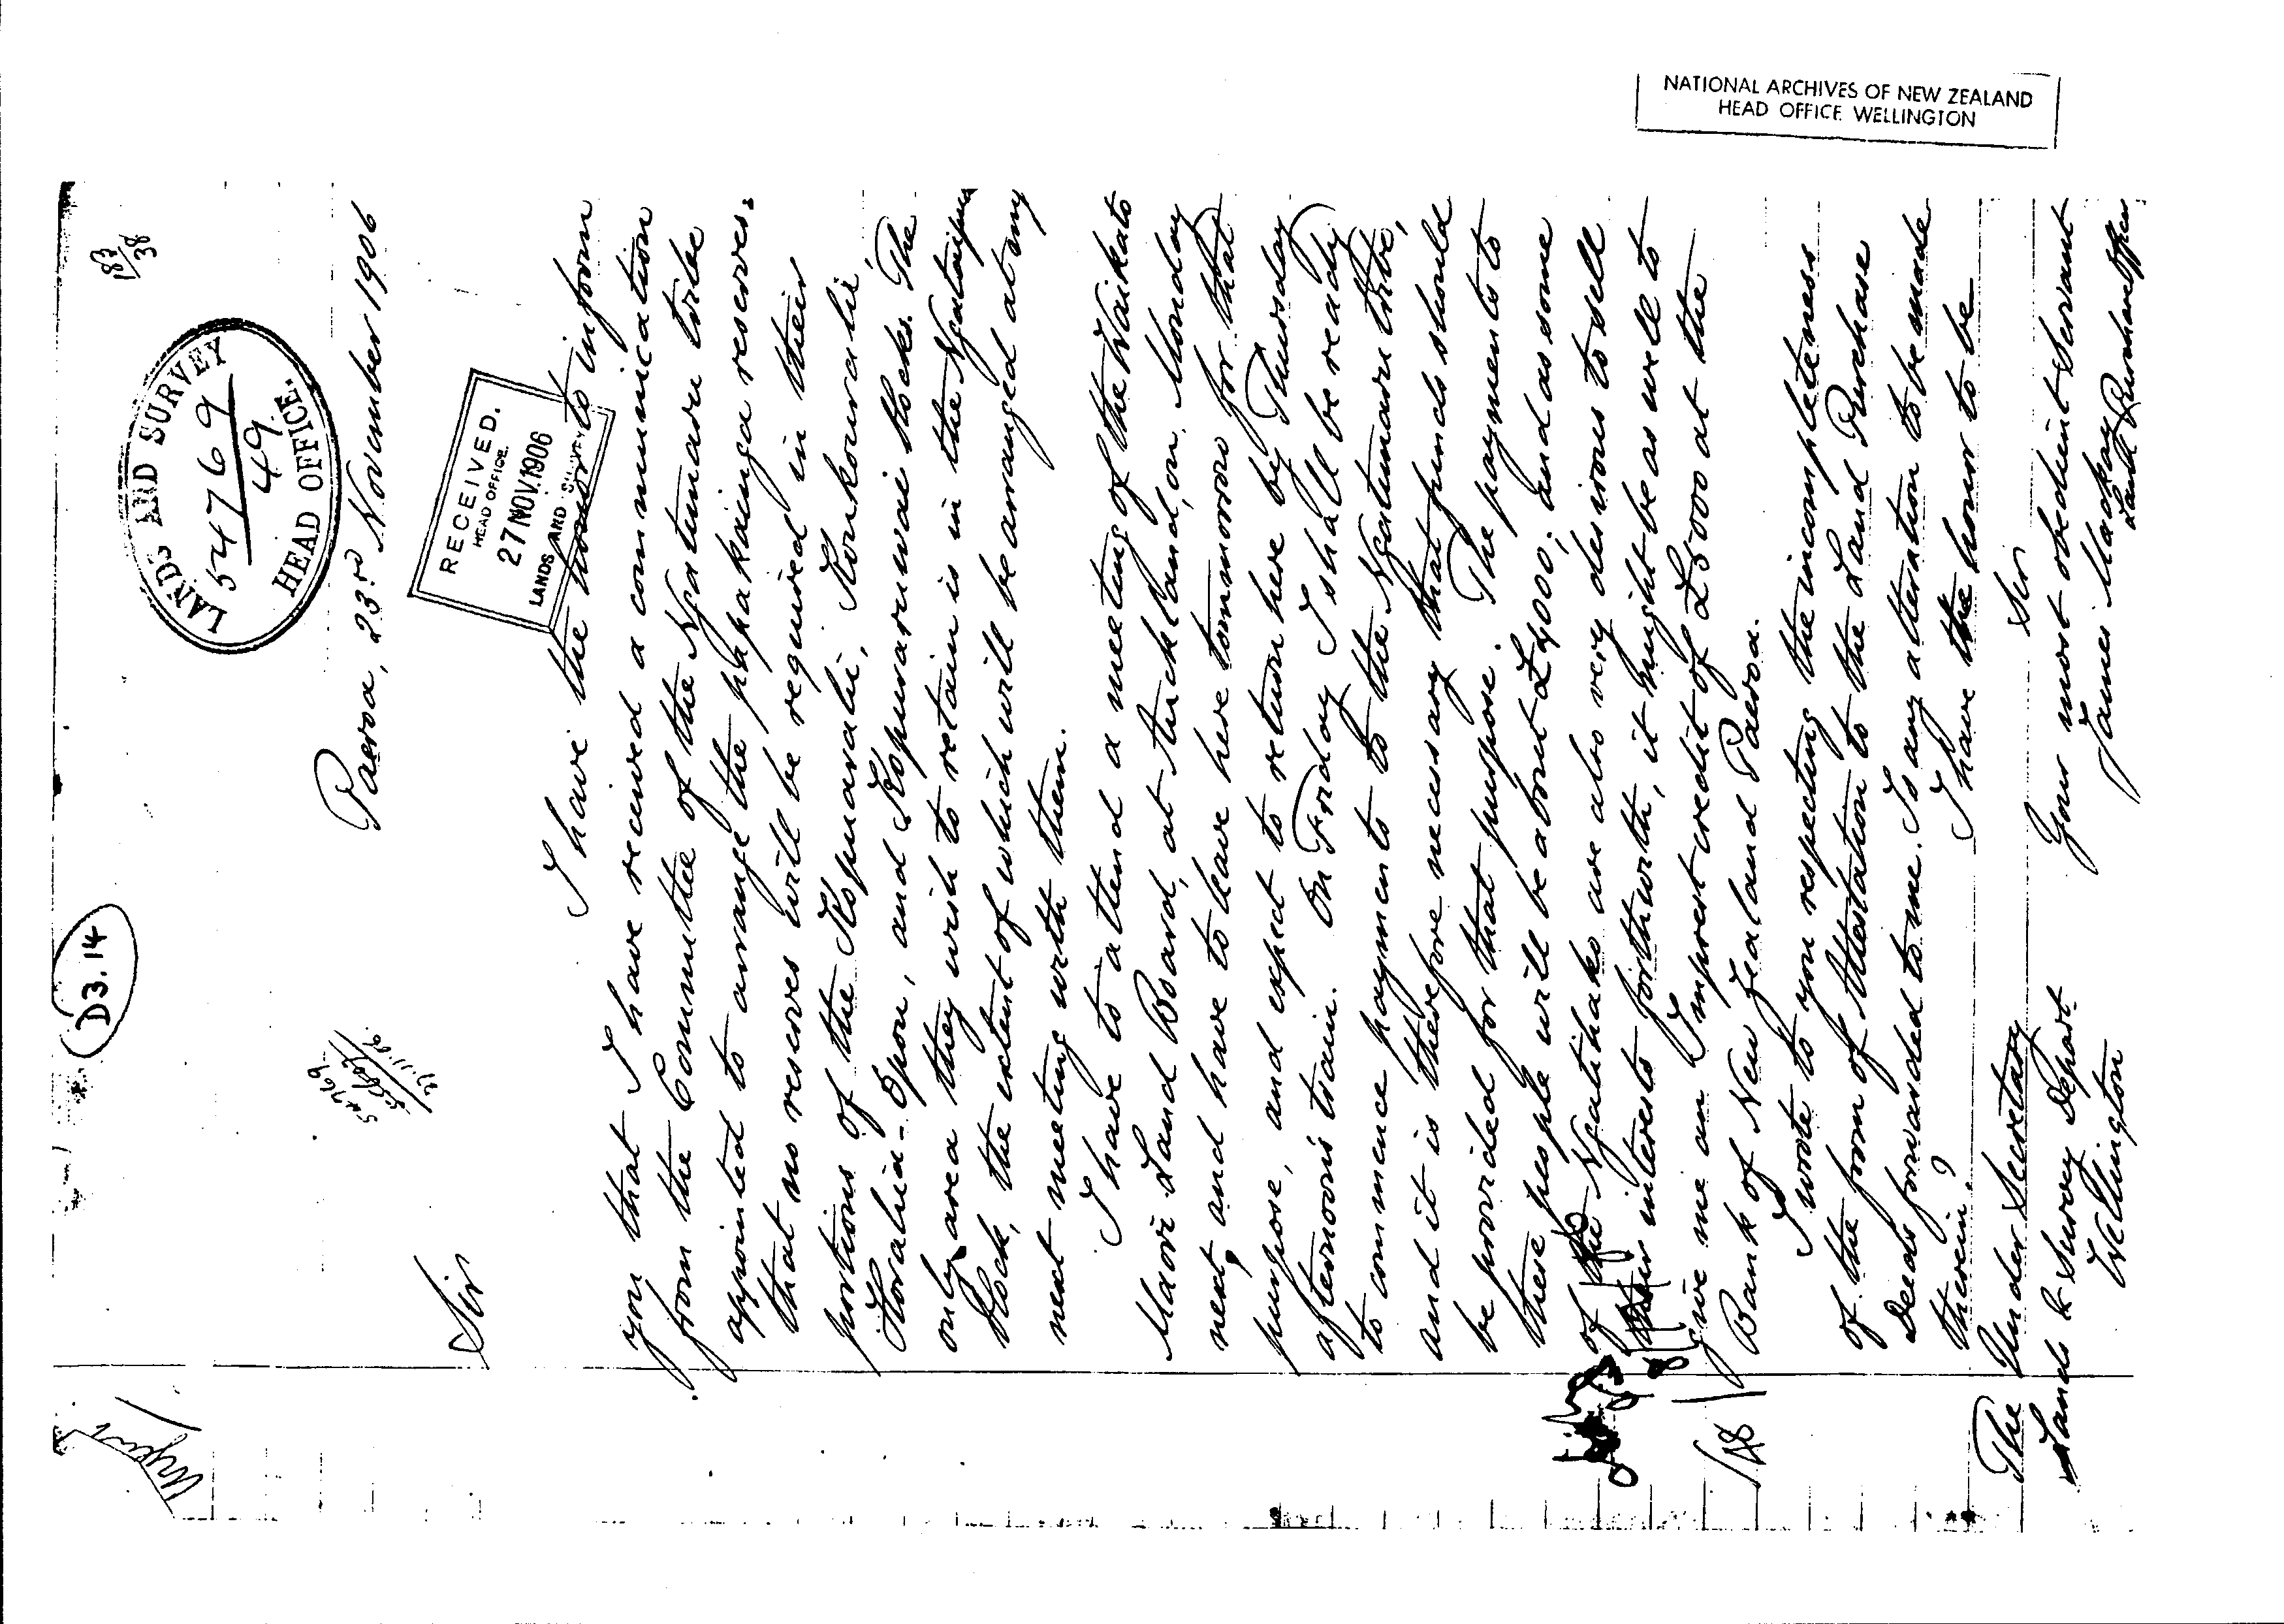 NATIONAL ARCHIVES OF NEW ZEALAND
HEAD OFFICE WELLINGTON
D3.14
183/38
LANDS AND SURVEY
54769
49
HEAD OFFICE.
Urgent
Paeroa, 23rd November 1906
RECEIVED.
HEAD OFFICE.
27 NOV.1906
LANDS AND SURVEY
Sir
I have the honour to inform
you that I have received a communication
from the Committee of the Ngatumaru tribe
appointed to arrange the papakainga reserves.
that no reserves will be required in their
portions of the Kopuarahi, Horkourahi,
and Kopuraruwai blocks. The
only area they wish to retain is in the
block, the extent of which will be arranged at my
next meeting with them.
I have to attend a meeting of the Waikato
Maori Land Board, at Auckland, on, Monday
next, and have to leave here tommorrow for that
purpose, and expect to return here by Thursday
afternoon's train. On Friday I shall be ready
to commence payments to the Ngatumaru tribe,
and it is therefore necessary that funds should
be provided for that purpose. The payments to
these people will be about £4000; and as some
of the Ngatihako are also very desirous to sell
their interests forthwith, it might be as well to
give me an Imprest credit of £5000 at the
Bank of New Zealand Paeroa.
I wrote to you respecting the incompleteness
of the form of Attestation to the Land Purchase
Deeds forwarded to me. Is any alteration to be made
therein?
I have the honor to be
Sir
Your most obedient Servant
James Mackay
Land Purchase Officer
The Under Secretary
Lands & Survey Depart.
Wellington